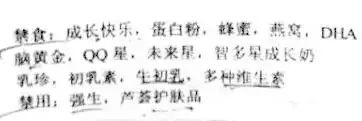 禁食：成长快乐，蛋白粉，蜂蜜，燕窝，DHA
脑黄金，QQ星，未来星，智多星成长奶
乳珍，初乳素，牛初乳，多种维生素
禁用：强生，芦荟护肤品